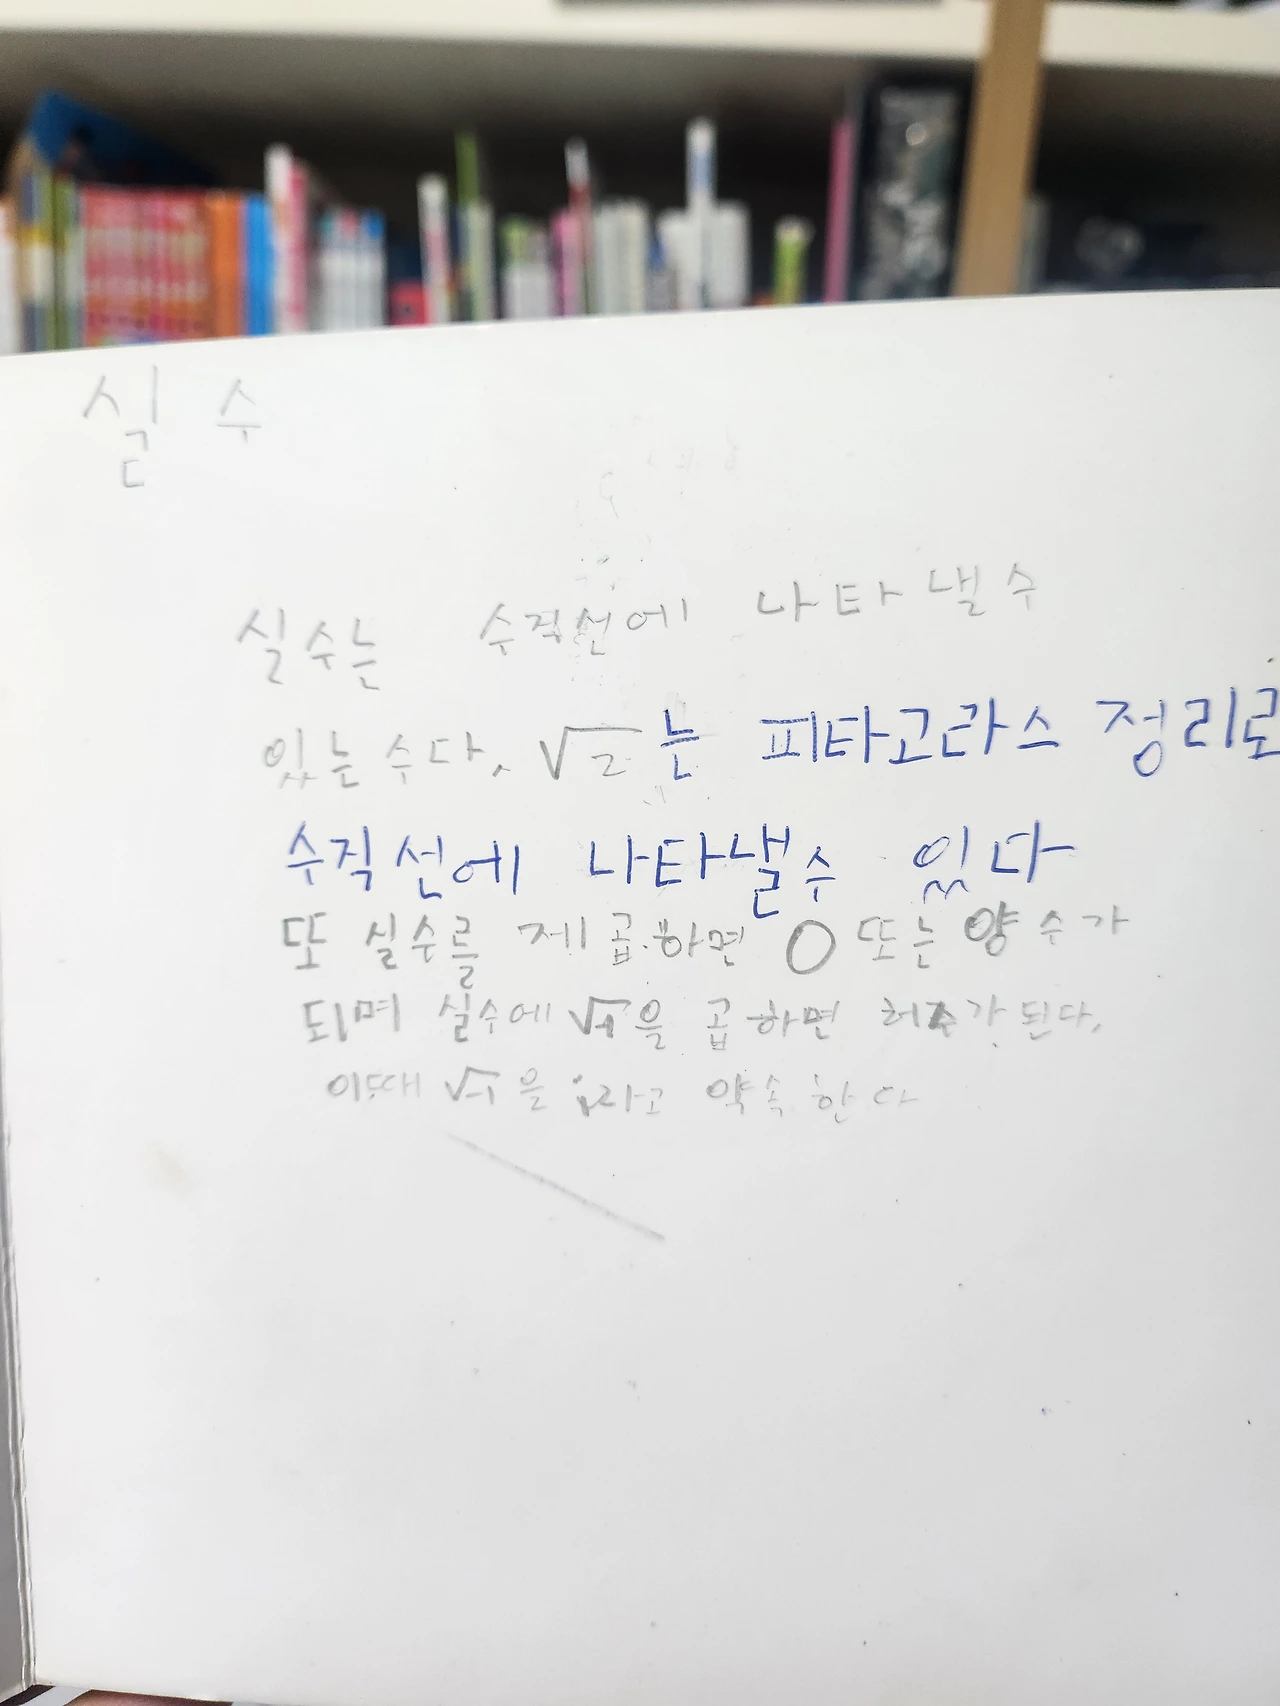 실수
실수는 수직선에 나타낼수
있는 수다, √2는 피타고라스 정리로
수직선에 나타낼수 있다
또 실수를 제곱하면 0 또는 양수가
되며 실수에 √-1을 곱하면 허수가 된다,
이때 √-1을 i라고 약속한다